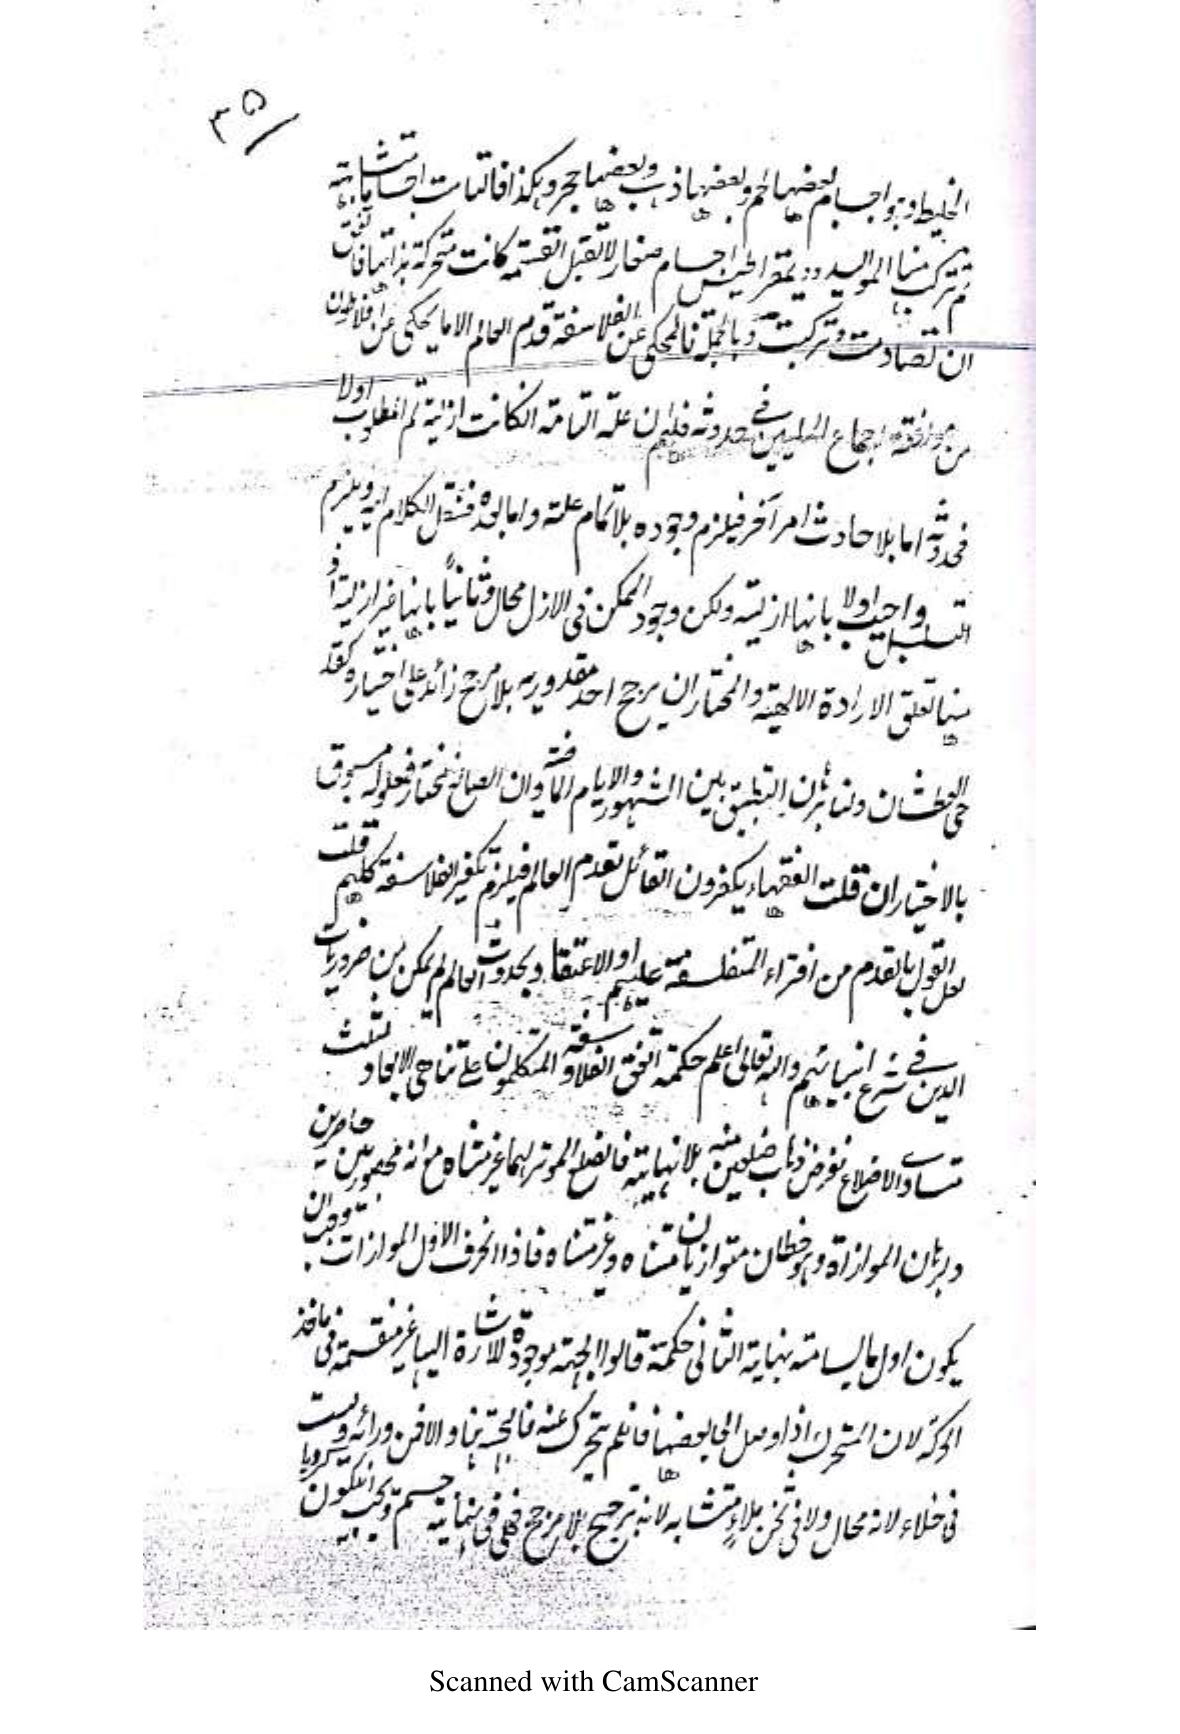 ٣٥
الخليط وهو اجسام بعضها لحم وبعضها ذهب وبعضها حجر وهكذا فالتامت اجسام متشابهة
ثم تركب منها المواليد ودیمقراطیس اجسام صغار لا تقبل القسمة كانت متحركة بذاتها فاتفق
ان تصادمت وتركبت وبالجملة فالمحكى عن الفلاسفة قدم العالم الا ما يحكى عن افلاطون
من موافقة اجماع المليين فى حدوثه فلهم ان علة التامة ان كانت ازلية تم المطلوب اولا
فحدوثه اما بلا حادث امر آخر فيلزم وجوده بلا تمام علته واما لحدوثه فننقل الكلام اليه ويلزم
التسلسل واجيب اولا بانها ازلية ولكن وجود الممكن فى الازل محال وثانياً بانها غير ازلية اذ
منها تعلق الارادة الالهية والمختار ان يرجح احد مقدوريه بلا مرجح زائد على اختياره كقدحى
العطشان ولنا برهان التطبيق بين الشهور والايام الصانع مختار فمعلوله مسبوق
بالاختيار ان قلت الفقهاء يكفرون القائل بقدم العالم فيلزم تكفير الفلاسفة كلهم قلت
لعل القول بالقدم من افتراء المتفلسفة عليهم او الاعتقاد بحدوث العالم لم يكن من ضروريات
الدين فى شرع انبيائهم والله تعالى اعلم حكمة اتفق الفلاسفة والمتكلمون على تناهى الابعاد لمثلث
متساوى الاضلاع نفرض ذهاب ضلعين منه بلا نهاية فالضلع الموتر لهما غير متناه مع انه محصور بين حاصرين
ولبرهان الموازاة وهو خطان متوازيان متناه وغير متناه فاذا انحرف الاول الموازات وجب ان
يكون اول ما يسامته نهاية الثانى حكمة قالوا الجهة موجودة للاشارة اليها غير منقسمة فى ماخذ
الحركة لان المتحرك اذا وصل الى بعضها فان لم يتحرك عنه فالجهة هنا والا فمن ورائه وليست
فى خلاء لانه محال ولا فى ثخن ملاء متشابه لانه ترجيح بلا مرجح فهى فى نهاية جسم ويجب ان يكون كرويا
Scanned with CamScanner